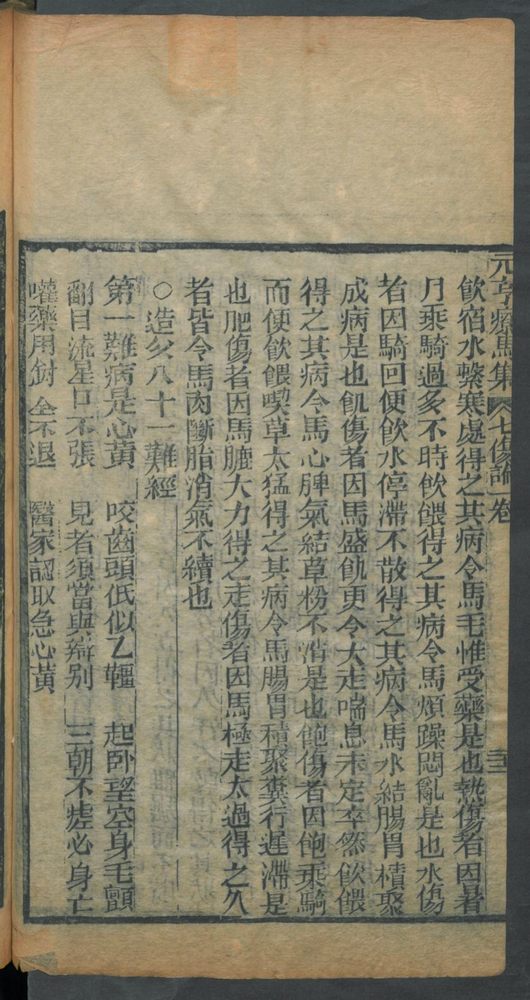 元亨療馬集 七傷論一卷 三十二
飲宿水繫寒處得之其病令馬毛惟受藥是也熱傷者因暑
月乘騎過多不時飲餵得之其病令馬煩躁悶亂是也水傷
者因騎回便飲水停滯不散得之其病令馬水結腸胃積聚
成病是也飢傷者因馬盛飢更令大走喘息未定卒然飲餵
得之其病令馬心脾氣結草粉不消是也飽傷者因飽乘騎
而便飲餵喫草太猛得之其病令馬腸胃積聚糞行遲滯是
也肥傷者因馬臕大力得之走傷者因馬極走太過得之久
者皆令馬肉斷脂消氣不續也
○造父八十一難經
第一難病是心黃 咬齒頭低似乙韁 起卧望空身毛顫
翻目流星口不張 見者須當與辯別 三朝不瘥必身亡
嚾藥用針全不退 醫家認取急心黃